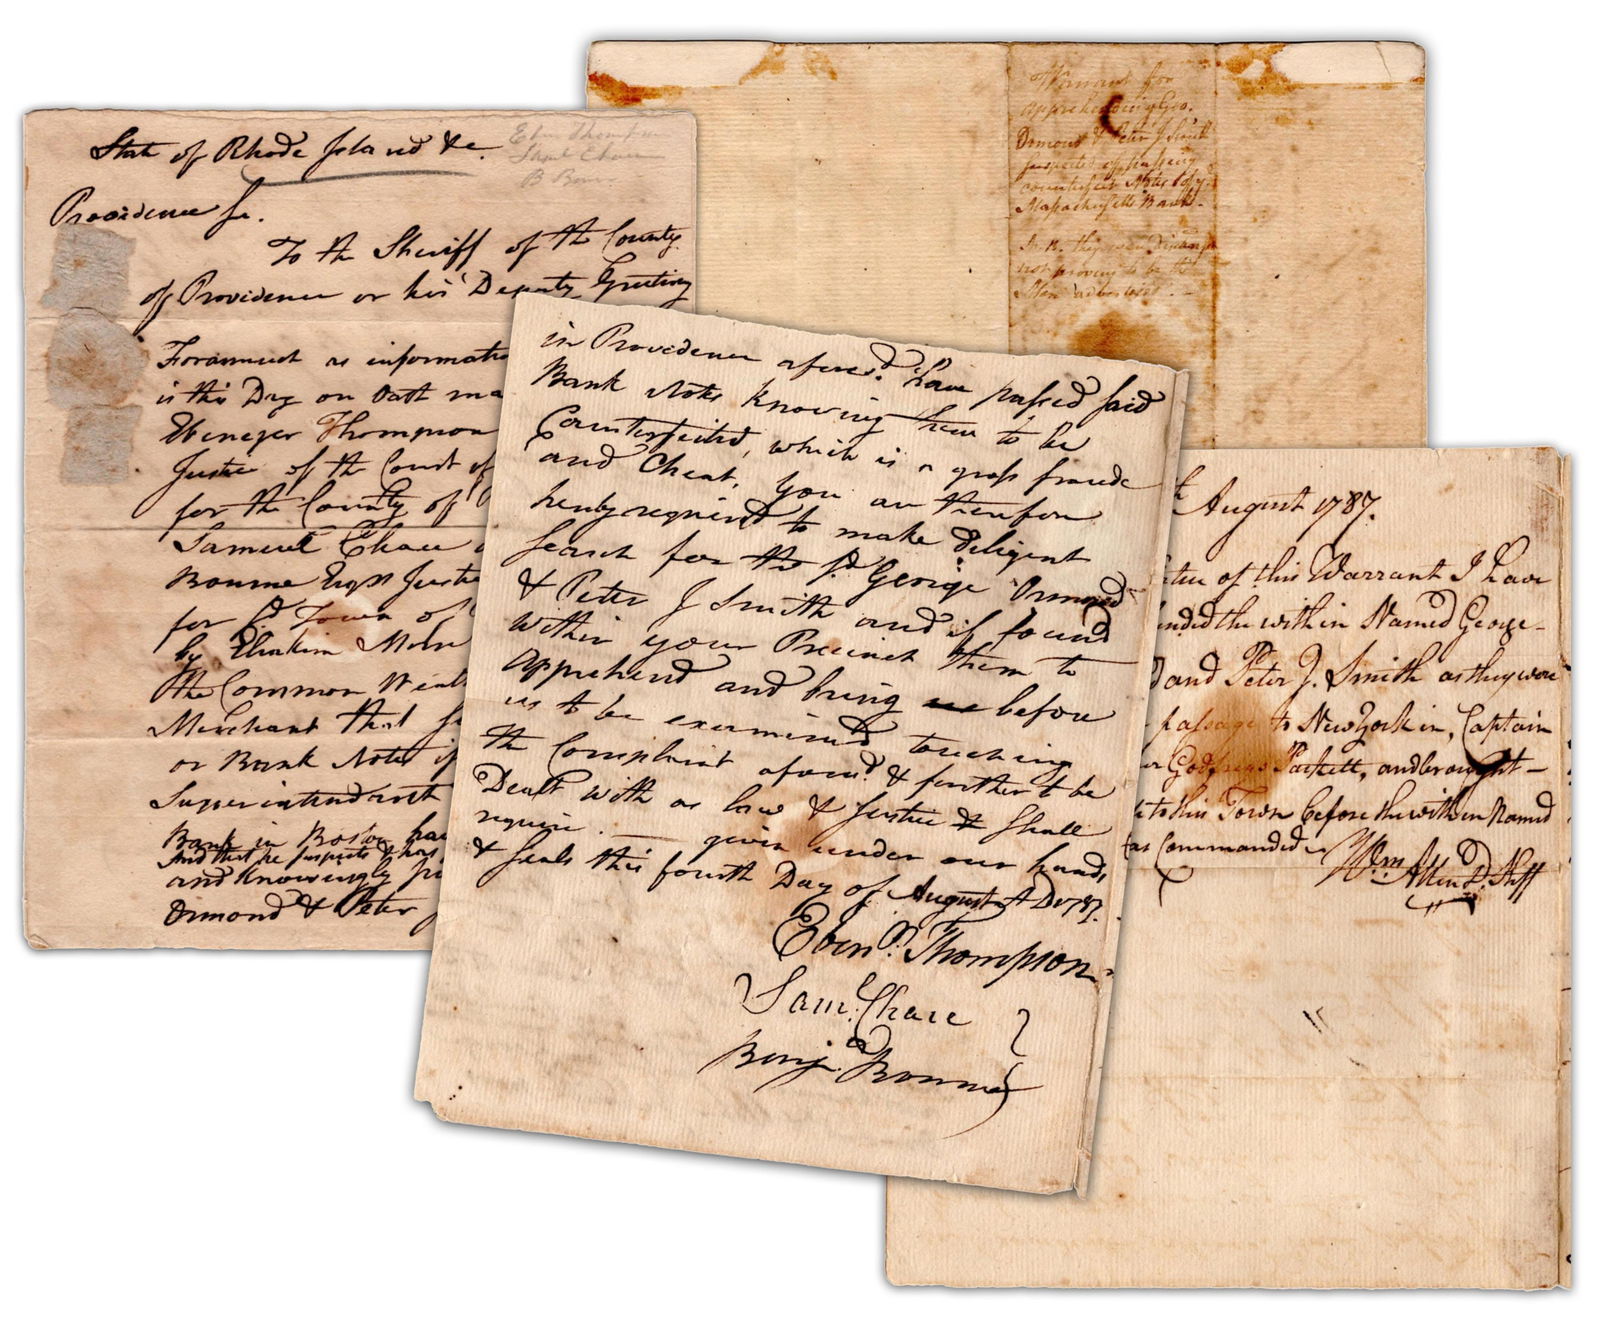 State of Rhode Island &c.
Eben Thompson
Saml Chace
B Bourn
Providence Sc.
To the Sheriff of the County
of Providence or his Deputy Greeting
Forasmuch as informatio
is this Day on Oath ma
Ebenezer Thompson
Justice of the Court of
for the County of
Samuel Chace
Bourne Esqrs Justi
for sd Town of
by Eliakim Mors
the Common Weal
Merchant that
or Bank Notes
Superintendent
Bank in Boston ha
and that he suspects & has
and knowingly
Ormond & Peter J
in Providence aforesd. have passed said
Bank Notes knowing them to be
Counterfeited, which is a gross fraude
and Cheat. You are therefore
hereby required to make diligent
search for the sd. George Ormond
& Peter J Smith and if found
within your Precinct them to
apprehend and bring before
us to be examined touching
the Complaint aforesd. & further to be
Dealt with as law & Justice shall
require. — given under our hands
& seals this fourth Day of August AD 1787.
Ebenr. Thompson
Saml. Chace
Benj. Bourne
Warrant for
apprehending Geo.
Ormond & Peter J Smith
suspected of passing
counterfeit Notes of ye
Massachusetts Bank.
N.B. they were Discharg
not proving to be the
Men advertised. —
th August 1787.
irtue of this Warrant I have
ended the within Named George
d and Peter J. Smith as they were
passage to New York in, Captain
Godfreys Packett, and brought —
to this Town before the within Named
as Commanded
Wm. Allen D. Shff